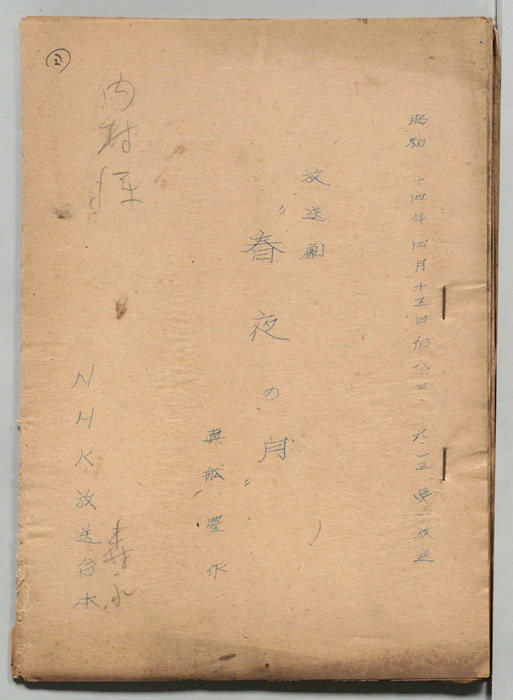 昭和 二十四年四月十五日后八.三〇 九.一五 第一放送
放送劇
“春夜の月”
真船豊作
NHK放送台本
森永
内村
②